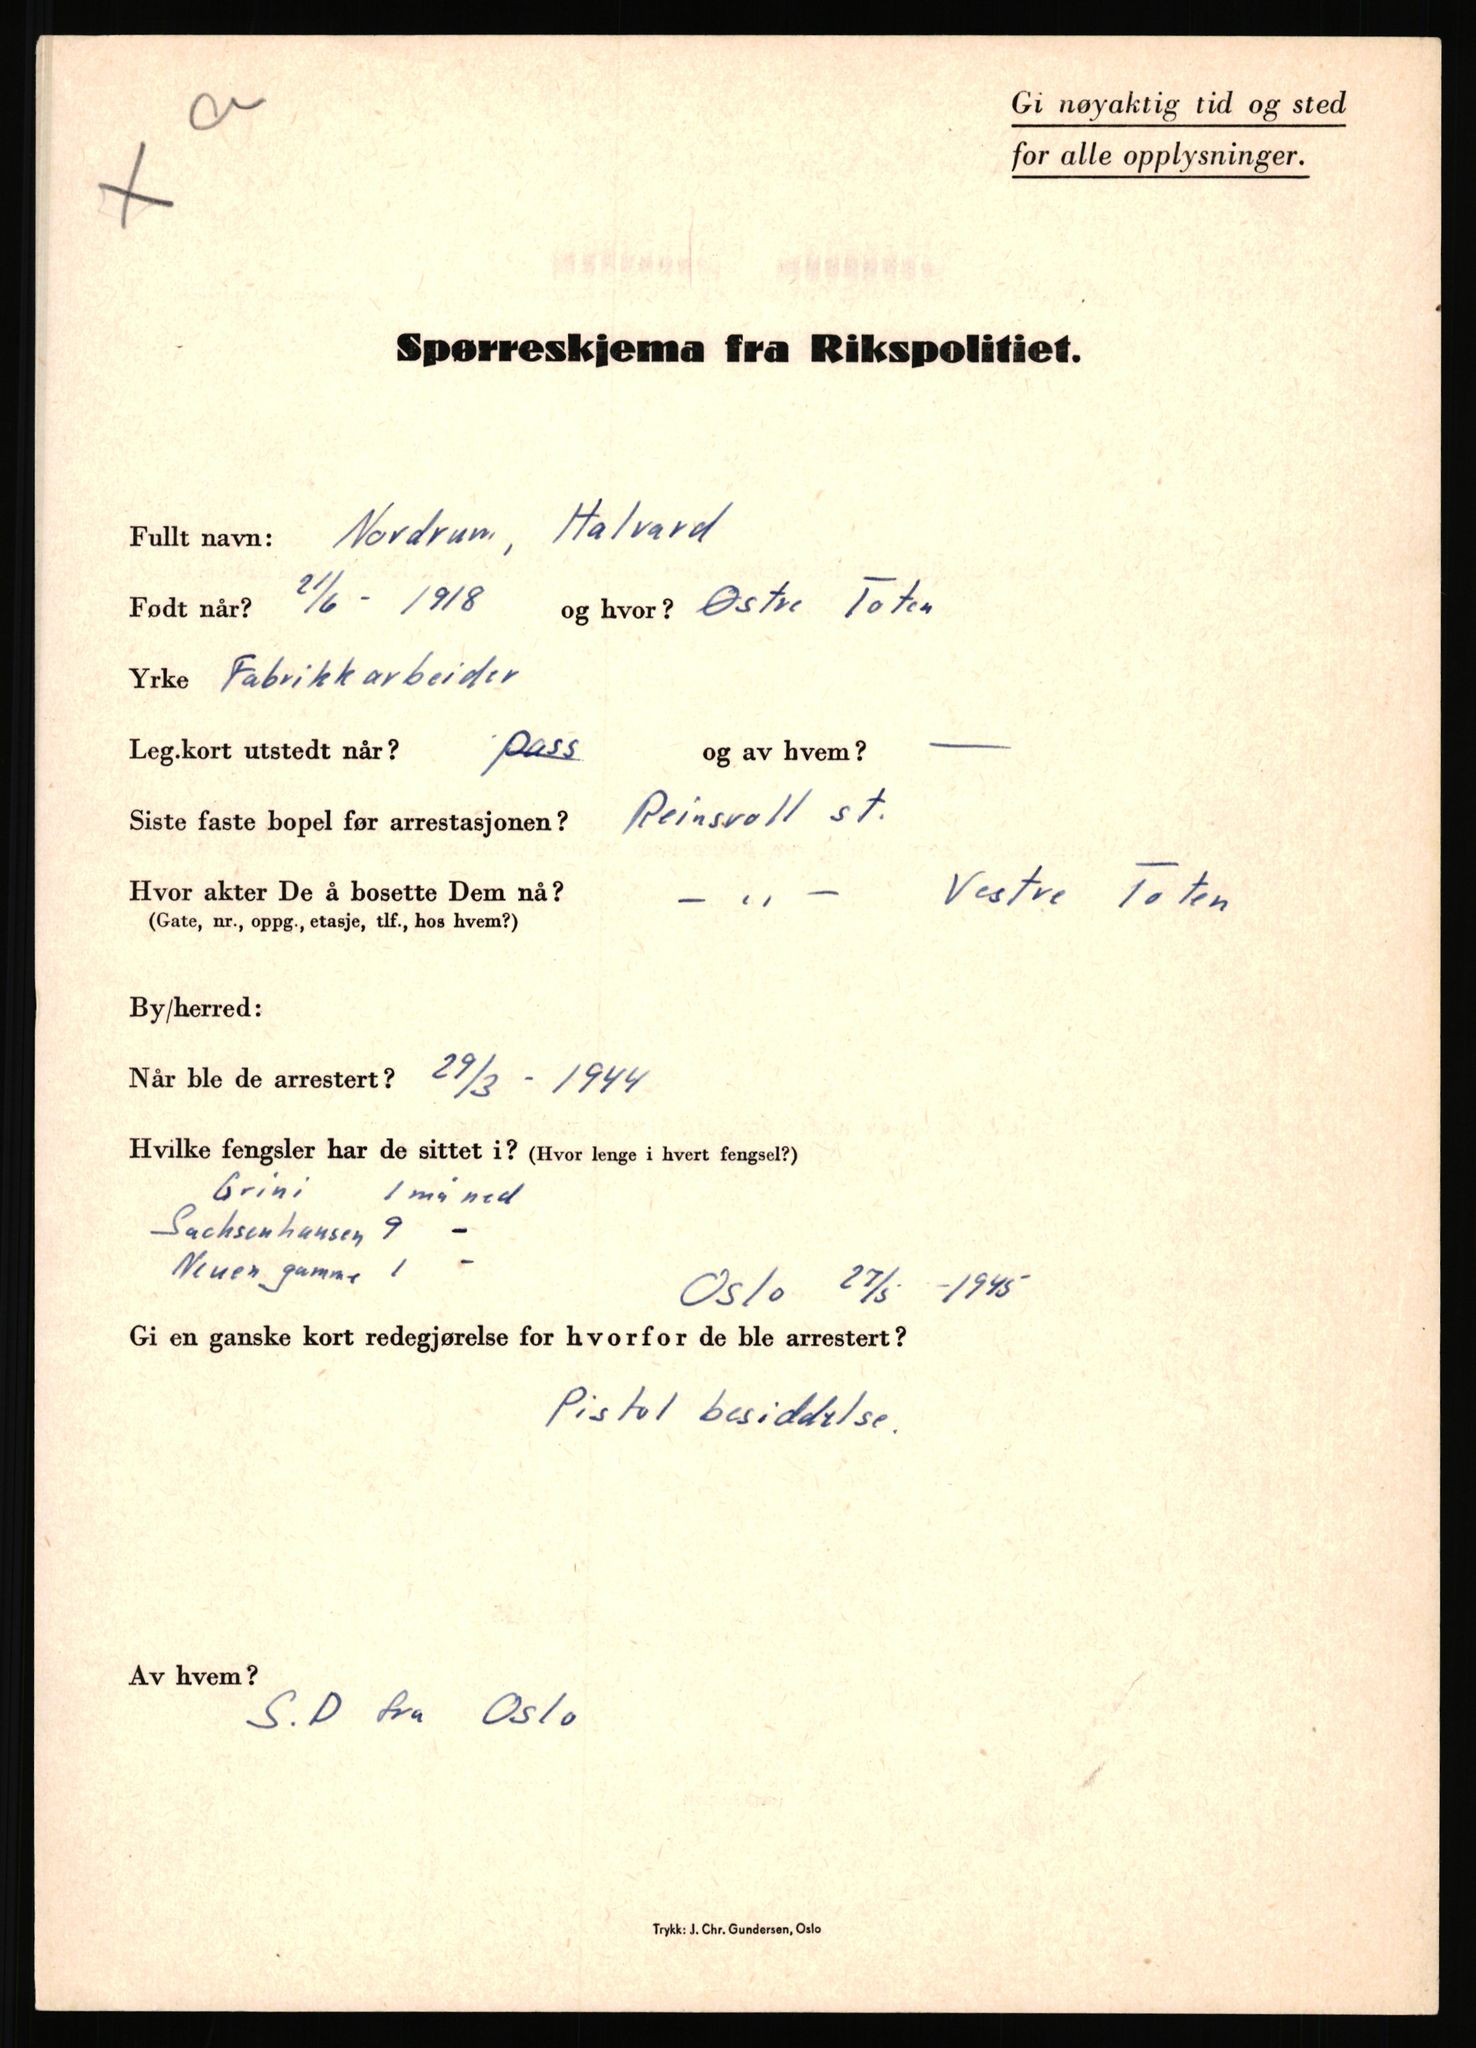 Gi nøyaktig tid og sted
for alle opplysninger.
Spørreskjema fra Rikspolitiet.
Fullt navn: Nordrum, Halvard
Født når? 21/6 - 1918 og hvor? Østre Toten
Yrke Fabrikkarbeider
Leg.kort utstedt når? pass og av hvem? —
Siste faste bopel før arrestasjonen? Reinsvoll st.
Hvor akter De å bosette Dem nå? — ,, — Vestre Toten
(Gate, nr., oppg., etasje, tlf., hos hvem?)
By/herred:
Når ble de arrestert? 29/3 - 1944
Hvilke fengsler har de sittet i? (Hvor lenge i hvert fengsel?)
Grini 1 måned
Sachsenhausen 9 -
Neuen gamme 1 -
Oslo 27/5 - 1945
Gi en ganske kort redegjørelse for hvorfor de ble arrestert?
Pistol besiddelse.
Av hvem?
S.D fra Oslo
Trykk: J. Chr. Gundersen, Oslo